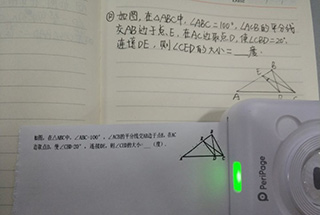 如图,在△ABC中,∠ABC=100°,∠ACB的平分线
交AB边于点E,在AC边取点D,使∠CBD=20°,
连接DE,则∠CED的大小=___度.
A
B
C
D
E
如图,在△ABC中,∠ABC=100°,∠ACB的平分线交AB边于点E,在AC
边取点D,使∠CBD=20°,连接DE,则∠CED的大小=___(度).
PeriPage